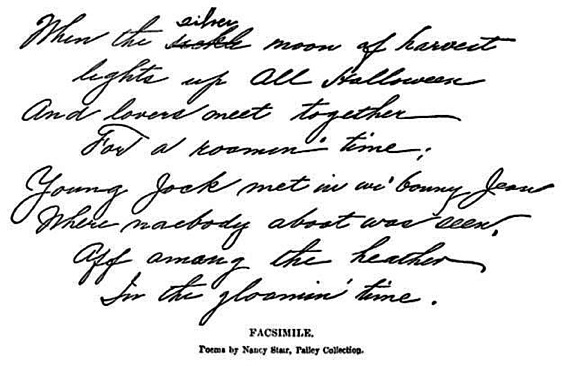 When the silver sickle moon of harvest
lights up All Halloween
And lovers meet together
For a roamin' time;
Young Jock met in wi' bonny Jean
Where naebody aboot was seen,
Aff among the heather
In the gloamin' time.
FACSIMILE.
Poems by Nancy Stair, Palley Collection.